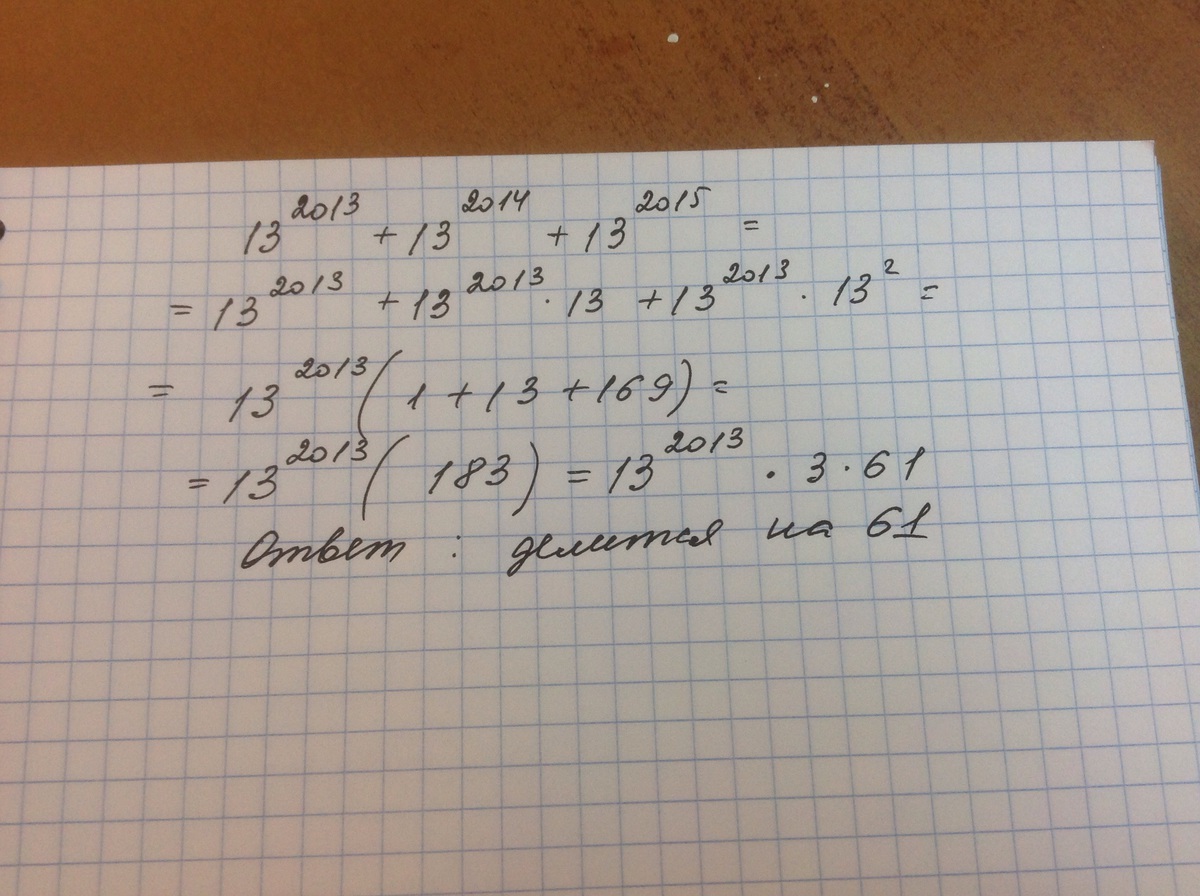 13²⁰¹³ + 13²⁰¹⁴ + 13²⁰¹⁵ =
= 13²⁰¹³ + 13²⁰¹³ · 13 + 13²⁰¹³ · 13² =
= 13²⁰¹³ ( 1 + 13 + 169 ) =
= 13²⁰¹³ ( 183 ) = 13²⁰¹³ · 3 · 61
Ответ : делится на 61